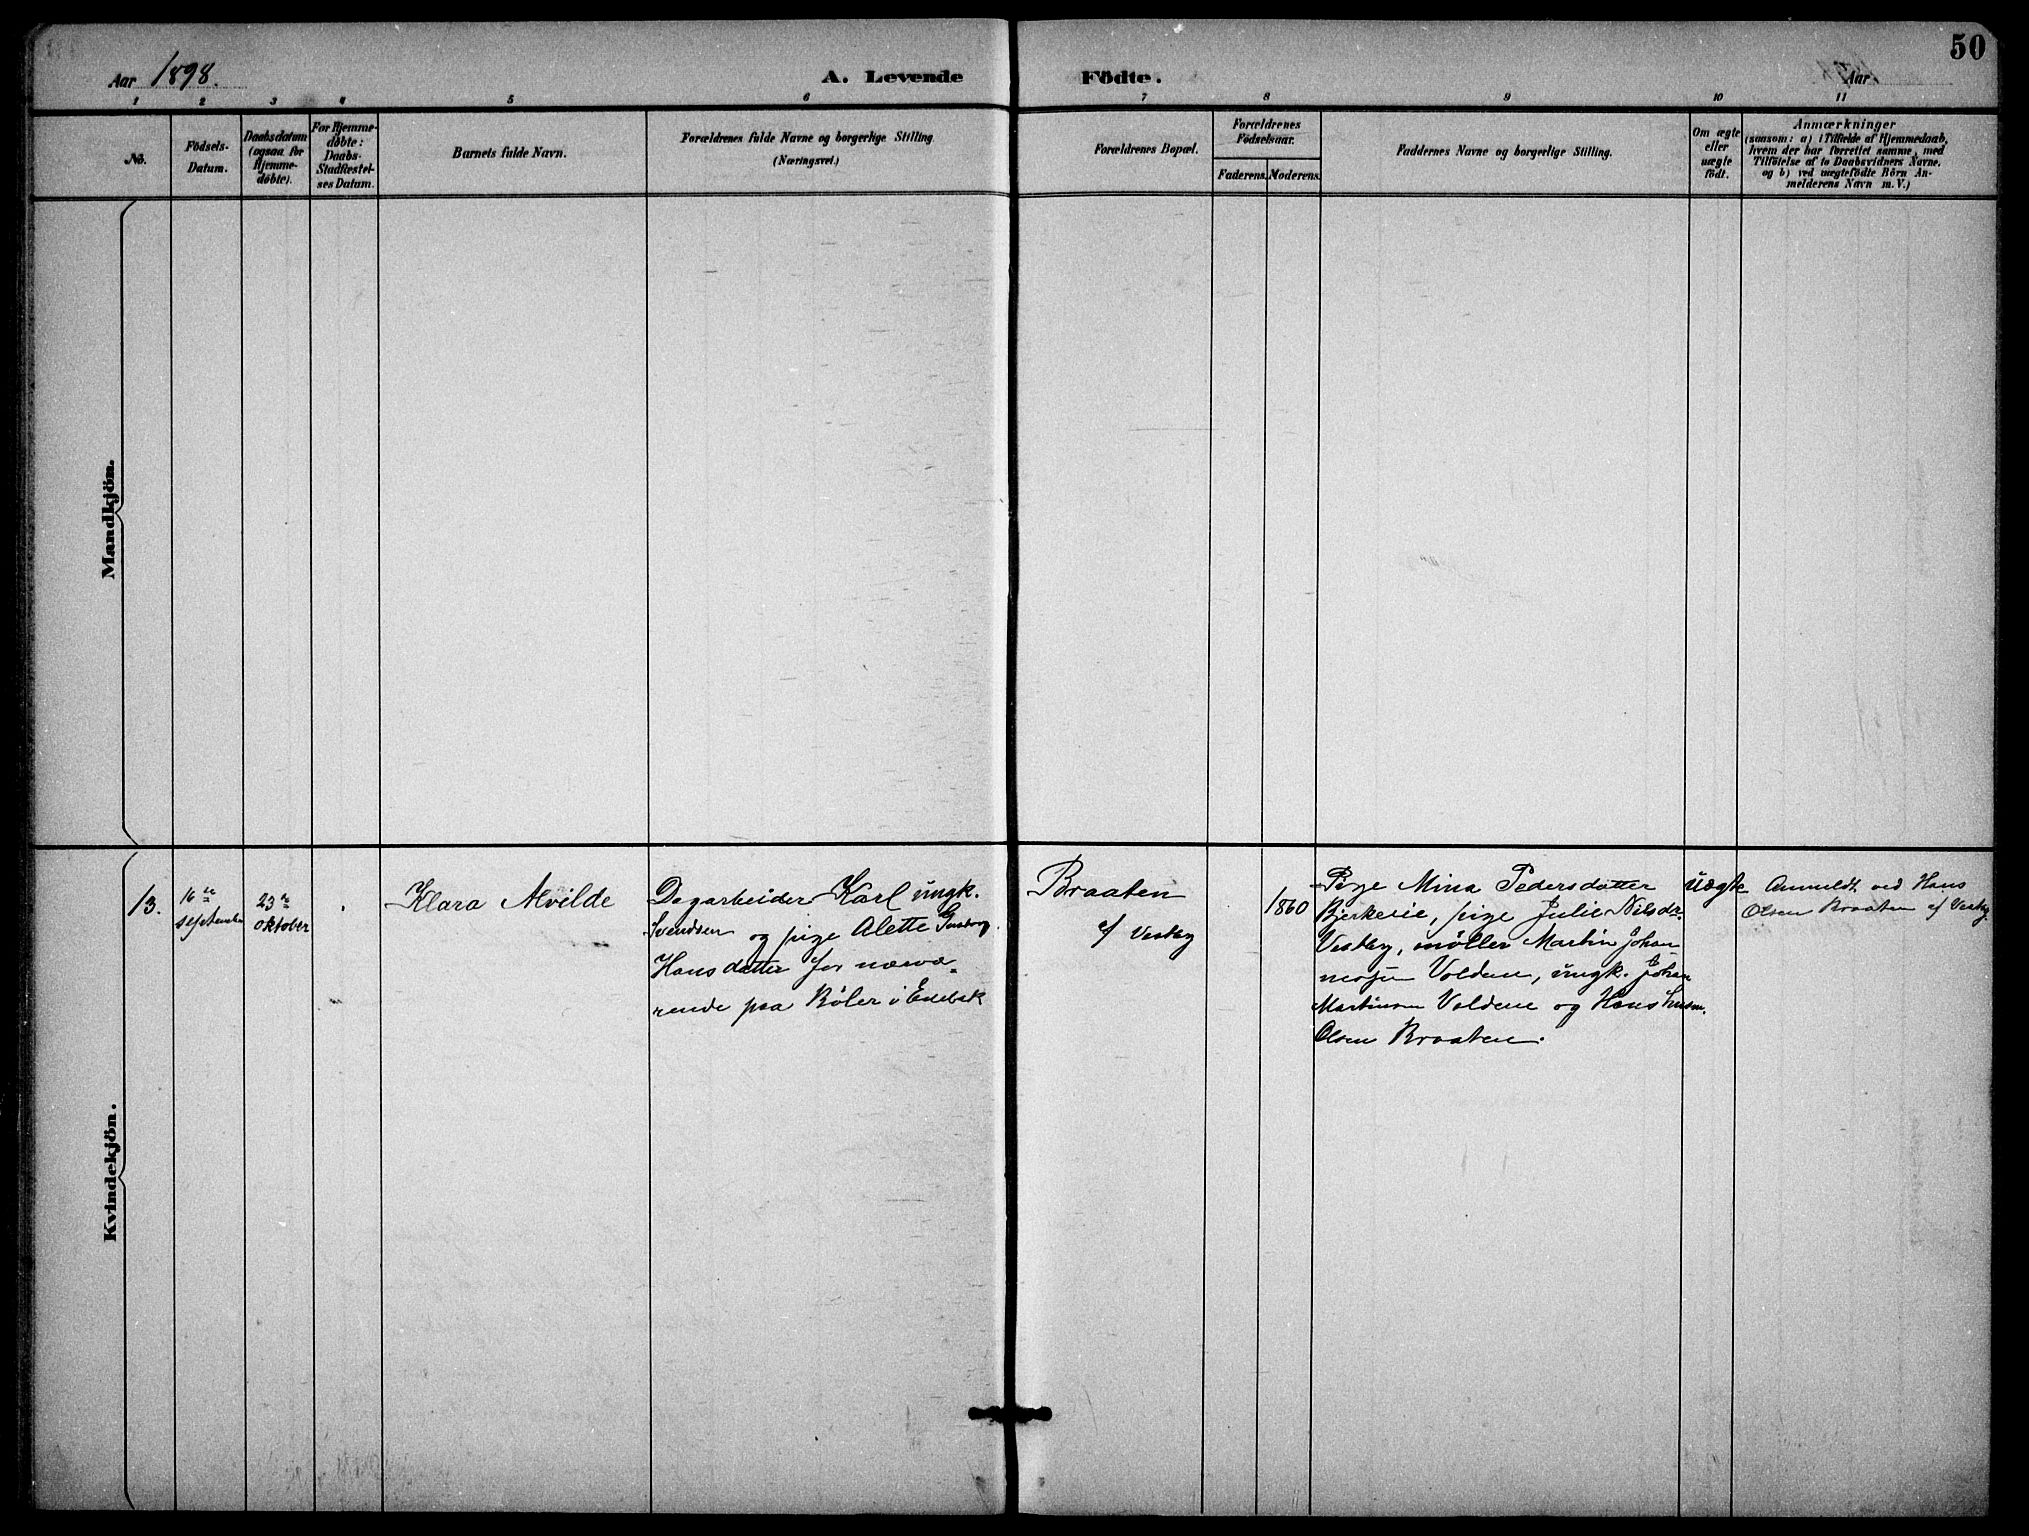 50
Aar 1898.
A. Levende Födte.
Aar
1 2 3 4 5 6 7 8 9 10 11
No.
Födsels-
Datum.
Daabsdatum
(ogsaa for
Hjemme-
döbte).
For Hjemme-
döbte:
Daabs-
Stadfæstel-
ses Datum.
Barnets fulde Navn.
Forældrenes fulde Navne og borgerlige Stilling
(Næringsvei.)
Forældrenes Bopæl.
Forældrenes
Födselsaar.
Faderens.
Moderens.
Faddernes Navne og borgerlige Stilling.
Om ægte
eller
uægte
födt.
Anmærkninger
(saasom: a) i Tilfælde af Hjemmedaab,
hvem der har forrettet samme, med
Tilföielse af to Daabsvidners Navne.
og b) ved uægtefödte Börn An-
melderens Navn m. V.)
Mandkjön.
Kvindekjön.
13.
16de
september
23de
oktober
Klara Alvilde
Dagarbeider Karl ungk.
Svendsen og pige Alette
Hansdatter for nærvæ-
rende paa Bøler i Enebak
Braaten
af Vestby
1860
Pige Mina Pedersdatter
Bjerkerie, pige Julie Nilsda.
Vestby, møller Martin Johan
nesen Voldene, ungk. Johan
Martinsen Voldene og Hans
Olsen Braaten.
uægte
Anmeldt ved Hans
Olsen Braaten af Vestby.